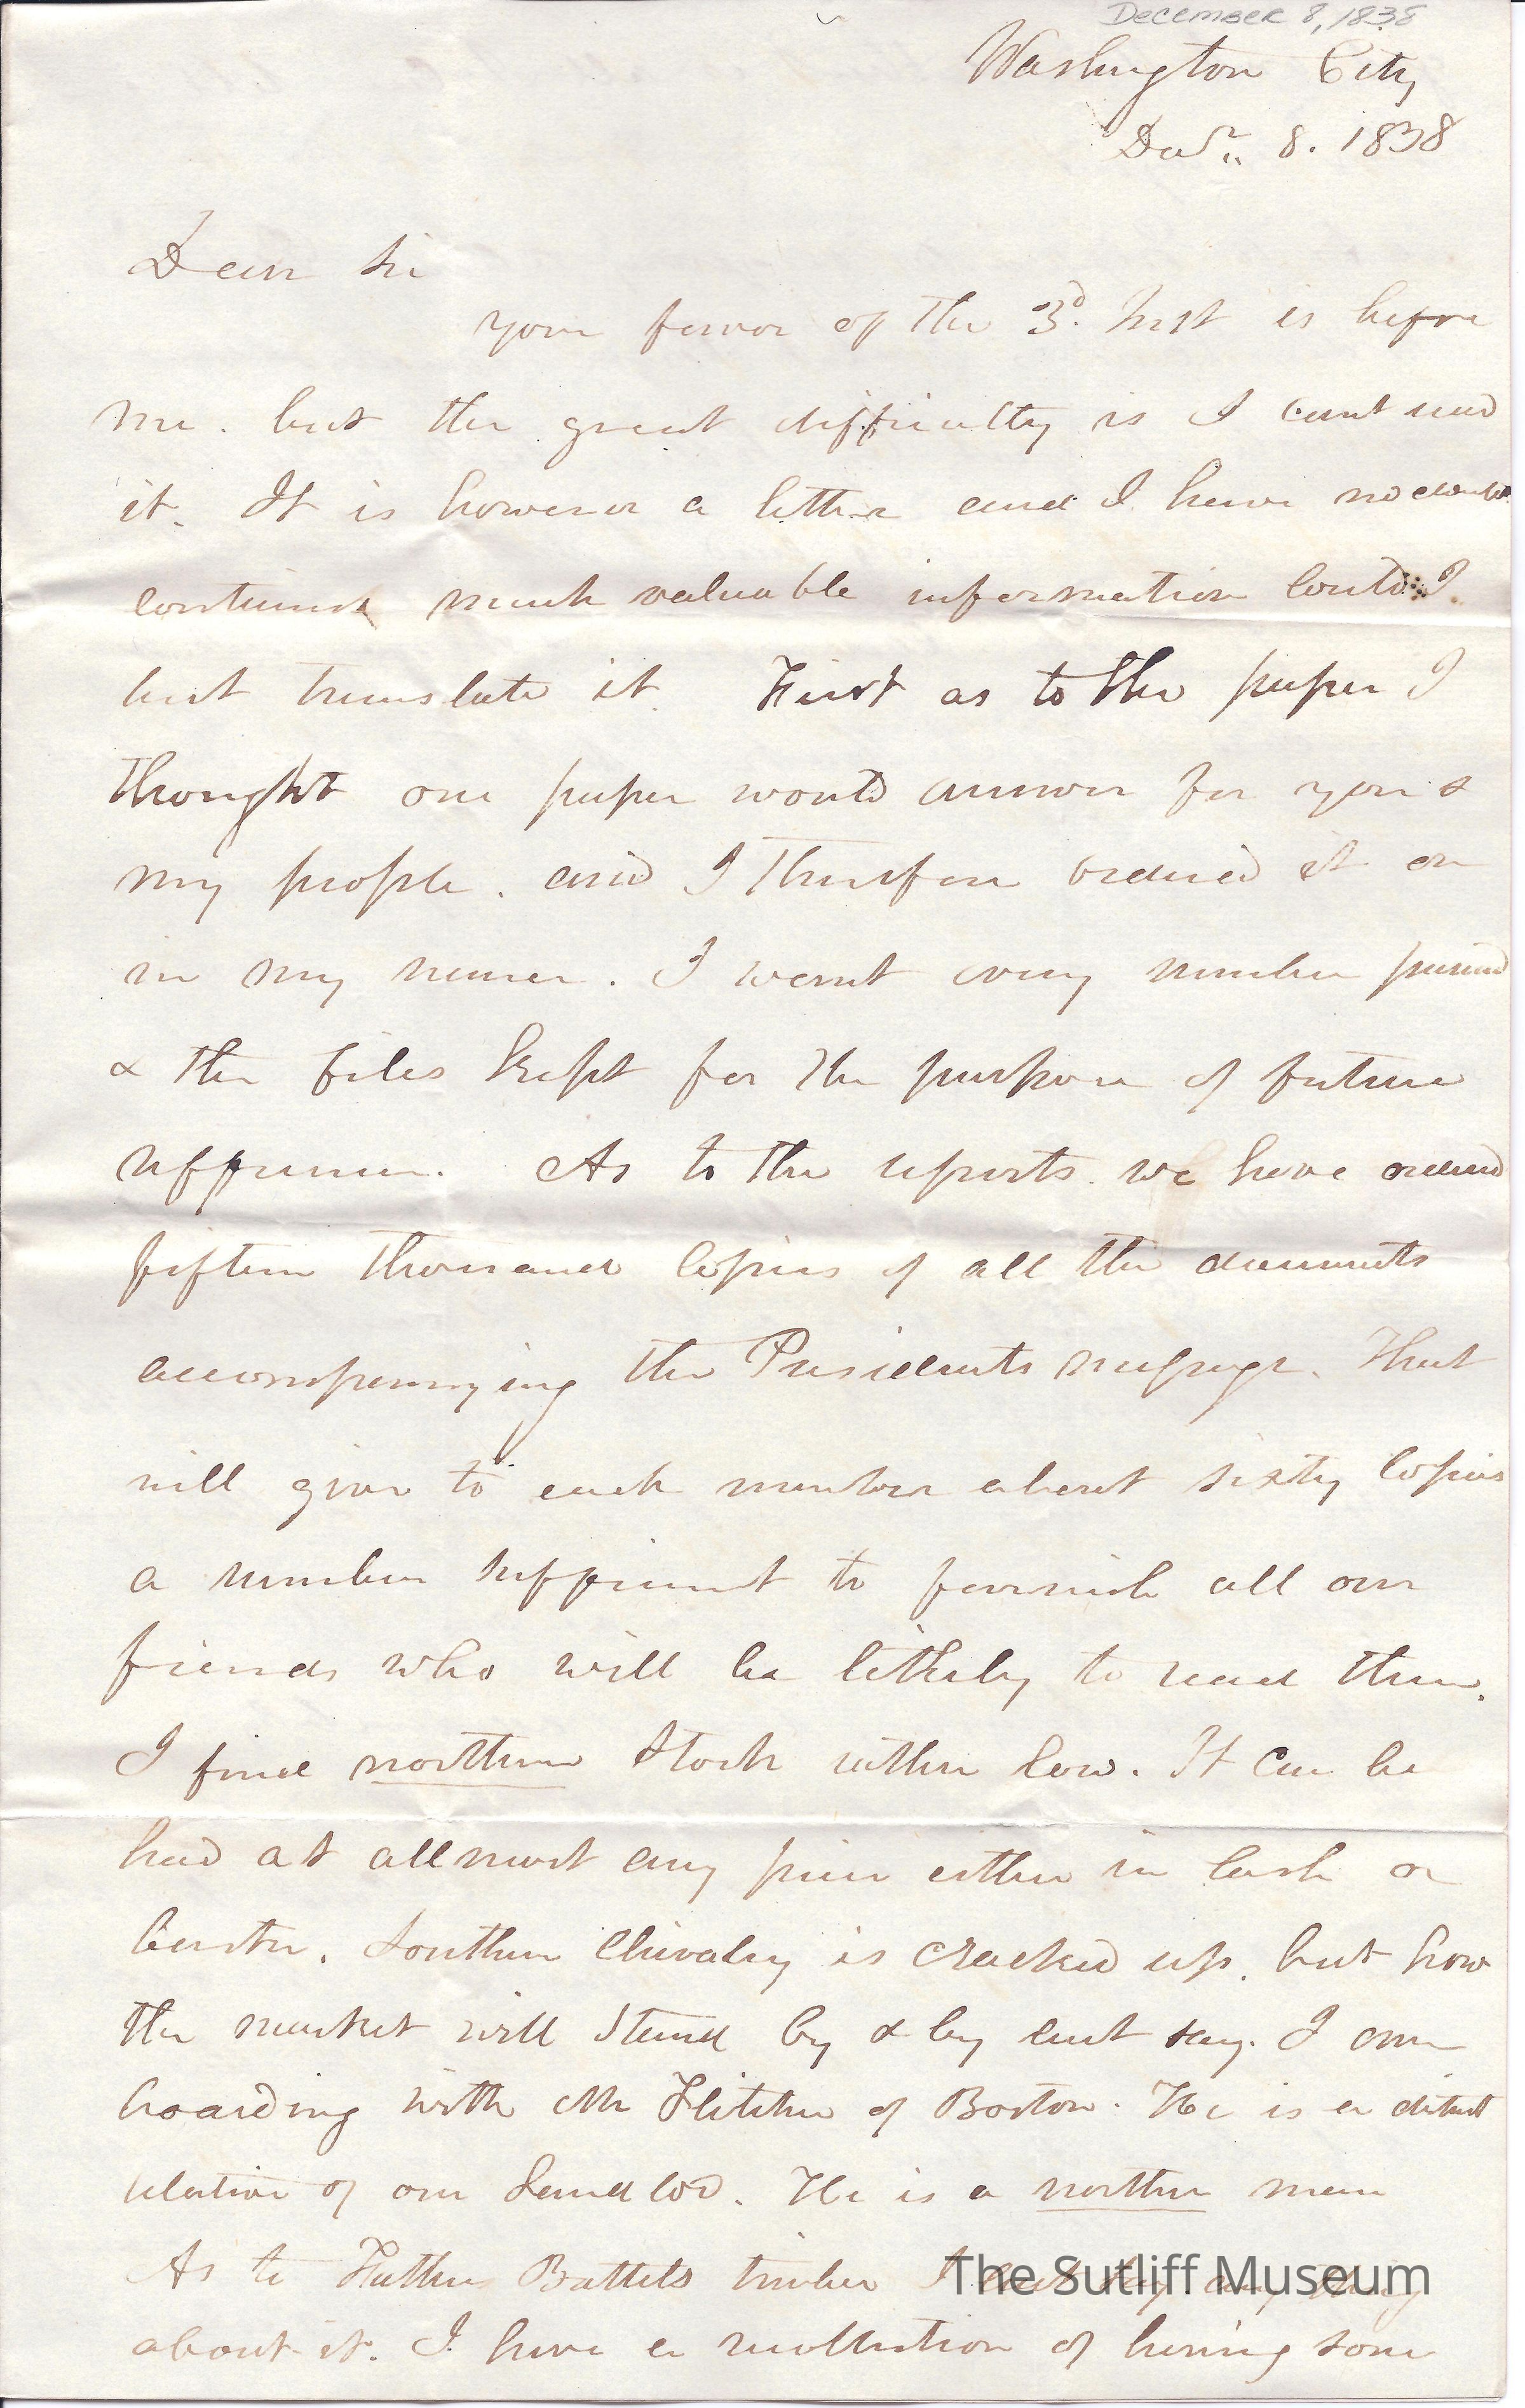 December 8, 1838
Washington City
Decr. 8. 1838
Dear Sir
your favor of the 3d. Inst is before
me. but the great difficulty is I cant read
it. It is however a letter and I have no doubt
contains much valuable information could I
but translate it. First as to the paper I
thought one paper would answer for your &
my people. and I therefore ordered it on
in my name. I want every number
& the files kept for the purpose of future
refference. As to the reports. we have ordered
fifteen thousand copies of all the documents
accompanying the Presidents message. That
will give to each member about sixty copies
a number sufficient to furnish all our
friends who will be likely to read them.
I find northern Stock rather low. It can be
had at allmost any price either in cash or
barter. Southern Chivalry is cracked up. but how
the market will stand by & by cant say. I am
boarding with Mr Fletcher of Boston. He is a distant
relative of our Landlord. He is a northern man
As to Father Battels timber I cant say any thing
about it. I have a recollection of having some
The Sutliff Museum